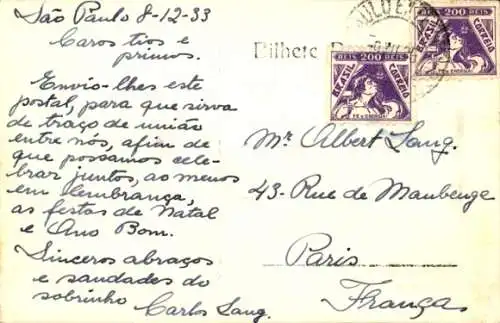 São Paulo 8-12-33
Caros tios e
primos.
Envio-lhes este
postal, para que sirva
de traço de união
entre nós, afim de
que possamos cele-
brar juntos, ao menos
em lembrança,
as festas de Natal
e Ano Bom.
Sinceros abraços
e saudades do
sobrinho
Carlos Lang.
Bilhete
REIS 200 REIS
BRASIL CORREIO
200 REIS
BRASIL CORREIO
Mr. Albert Lang.
43-Rue de Maubeuge
Paris
França